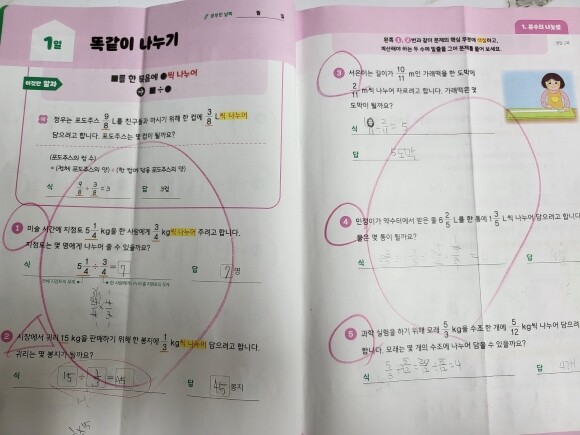 공부한 날짜 월 일
1일
똑같이 나누기
이것만 알자
■를 한 묶음에 ●씩 나누어
➡ ■÷●
예 정우는 포도주스 9/8 L를 친구들과 마시기 위해 한 컵에 3/8 L씩 나누어
담으려고 합니다. 포도주스는 몇 컵이 될까요?
(포도주스의 컵 수)
= (전체 포도주스의 양) ÷ (한 컵에 담을 포도주스의 양)
식 9/8 ÷ 3/8 = 3 답 3컵
1 미술 시간에 지점토 5 1/4 kg을 한 사람에게 3/4 kg씩 나누어 주려고 합니다.
지점토는 몇 명에게 나누어 줄 수 있을까요?
식 5 1/4 ÷ 3/4 = 7 답 7 명
전체 지점토의 무게 한 사람에게 나누어 줄 지점토의 무게
2 시장에서 귀리 15 kg을 판매하기 위해 한 봉지에 1/3 kg씩 나누어 담으려고 합니다.
귀리는 몇 봉지가 될까요?
식 15 ÷ 1/3 = 45 답 45 봉지
1. 분수의 나눗셈
왼쪽 1, 2번과 같이 문제의 핵심 부분에 색칠하고,
계산해야 하는 두 수에 밑줄을 그어 문제를 풀어 보세요.
3 서은이는 길이가 10/11 m인 가래떡을 한 도막에
2/11 m씩 나누어 자르려고 합니다. 가래떡은 몇
도막이 될까요?
식 10/11 ÷ 2/11 = 5
답 5도막
4 민정이가 약수터에서 받은 물 6 2/5 L를 한 통에 1 3/5 L씩 나누어 담으려고 합니다.
물은 몇 통이 될까요?
식
답
5 과학 실험을 하기 위해 모래 5/3 kg을 수조 한 개에 5/12 kg씩 나누어 담으려고
합니다. 모래는 몇 개의 수조에 나누어 담을 수 있을까요?
식 5/3 ÷ 5/12 = 20/12 ÷ 5/12 = 4
답 4개